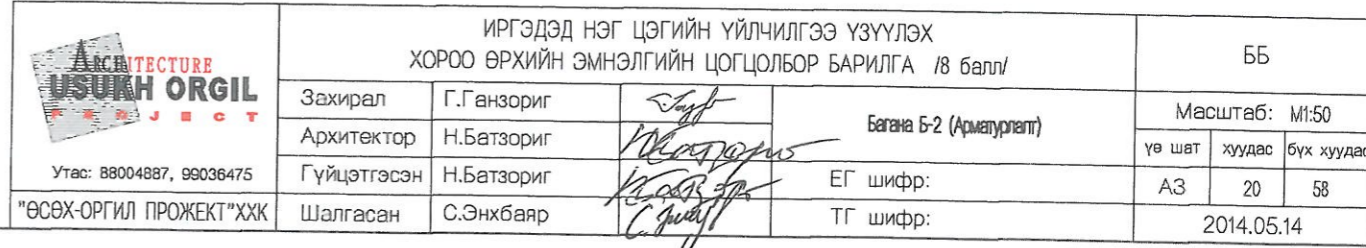 ARCHITECTURE
USUKH ORGIL
PROJECT
Утас: 88004887, 99036475
"ӨСӨХ-ОРГИЛ ПРОЖЕКТ"ХХК
ИРГЭДЭД НЭГ ЦЭГИЙН ҮЙЛЧИЛГЭЭ ҮЗҮҮЛЭХ
ХОРОО ӨРХИЙН ЭМНЭЛГИЙН ЦОГЦОЛБОР БАРИЛГА /8 балл/
Захирал Г.Ганзориг
Архитектор Н.Батзориг
Гүйцэтгэсэн Н.Батзориг
Шалгасан С.Энхбаяр
Багана Б-2 (Арматурлалт)
ЕГ шифр:
ТГ шифр:
ББ
Масштаб: М1:50
үе шат хуудас бүх хуудас
А3 20 58
2014.05.14